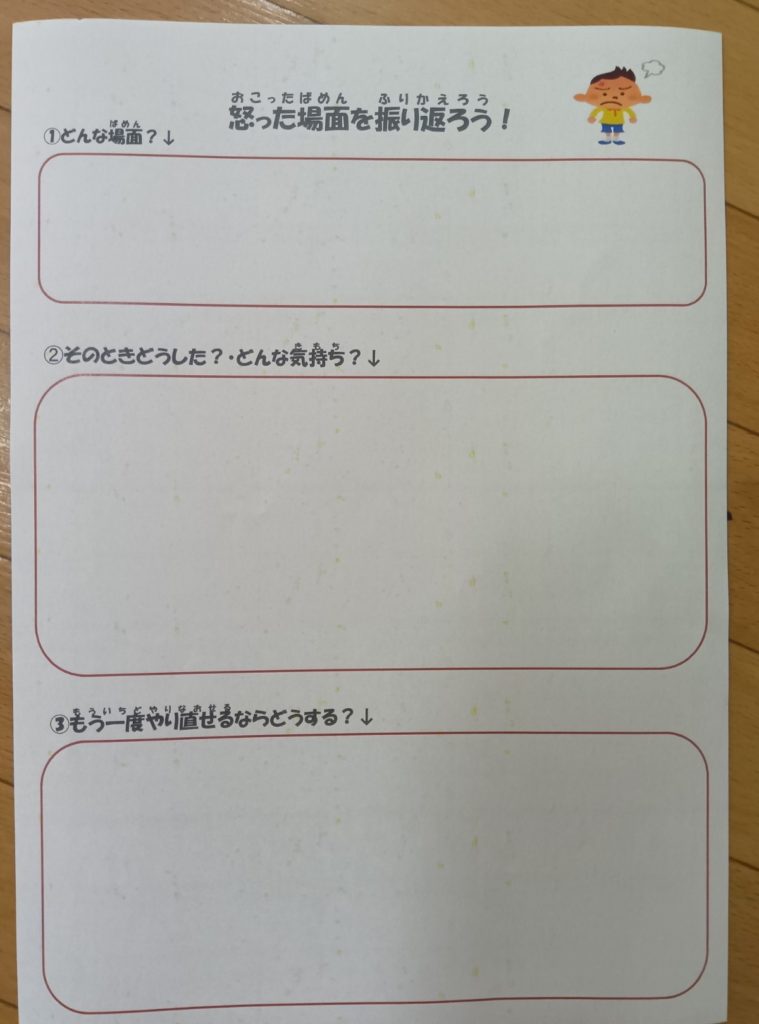 おこったばめん　ふりかえろう
怒った場面を振り返ろう！
ばめん
①どんな場面？↓
きもち
②そのときどうした？・どんな気持ち？↓
もういちどやりなおせる
③もう一度やり直せるならどうする？↓